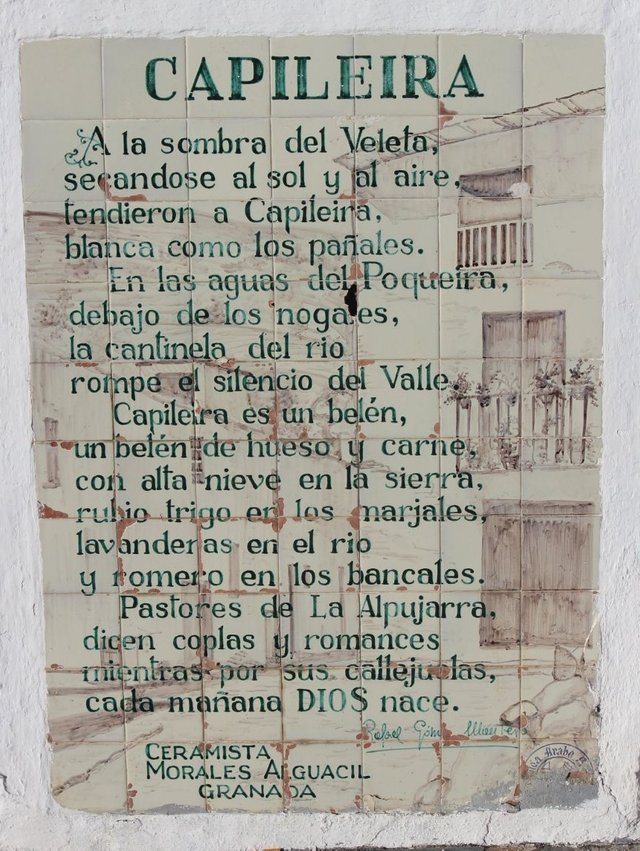 CAPILEIRA
A la sombra del Veleta,
secandose al sol y al aire,
tendieron a Capileira,
blanca como los pañales.
En las aguas del Poqueira,
debajo de los nogales,
la cantinela del rio
rompe el silencio del Valle.
Capileira es un belén,
un belén de hueso y carne,
con alta nieve en la sierra,
rubio trigo en los marjales,
lavanderas en el rio
y romero en los bancales.
Pastores de La Alpujarra,
dicen coplas y romances
mientras por sus callejuelas,
cada mañana DIOS nace.
Rafael
CERAMISTA
MORALES ALGUACIL
GRANADA